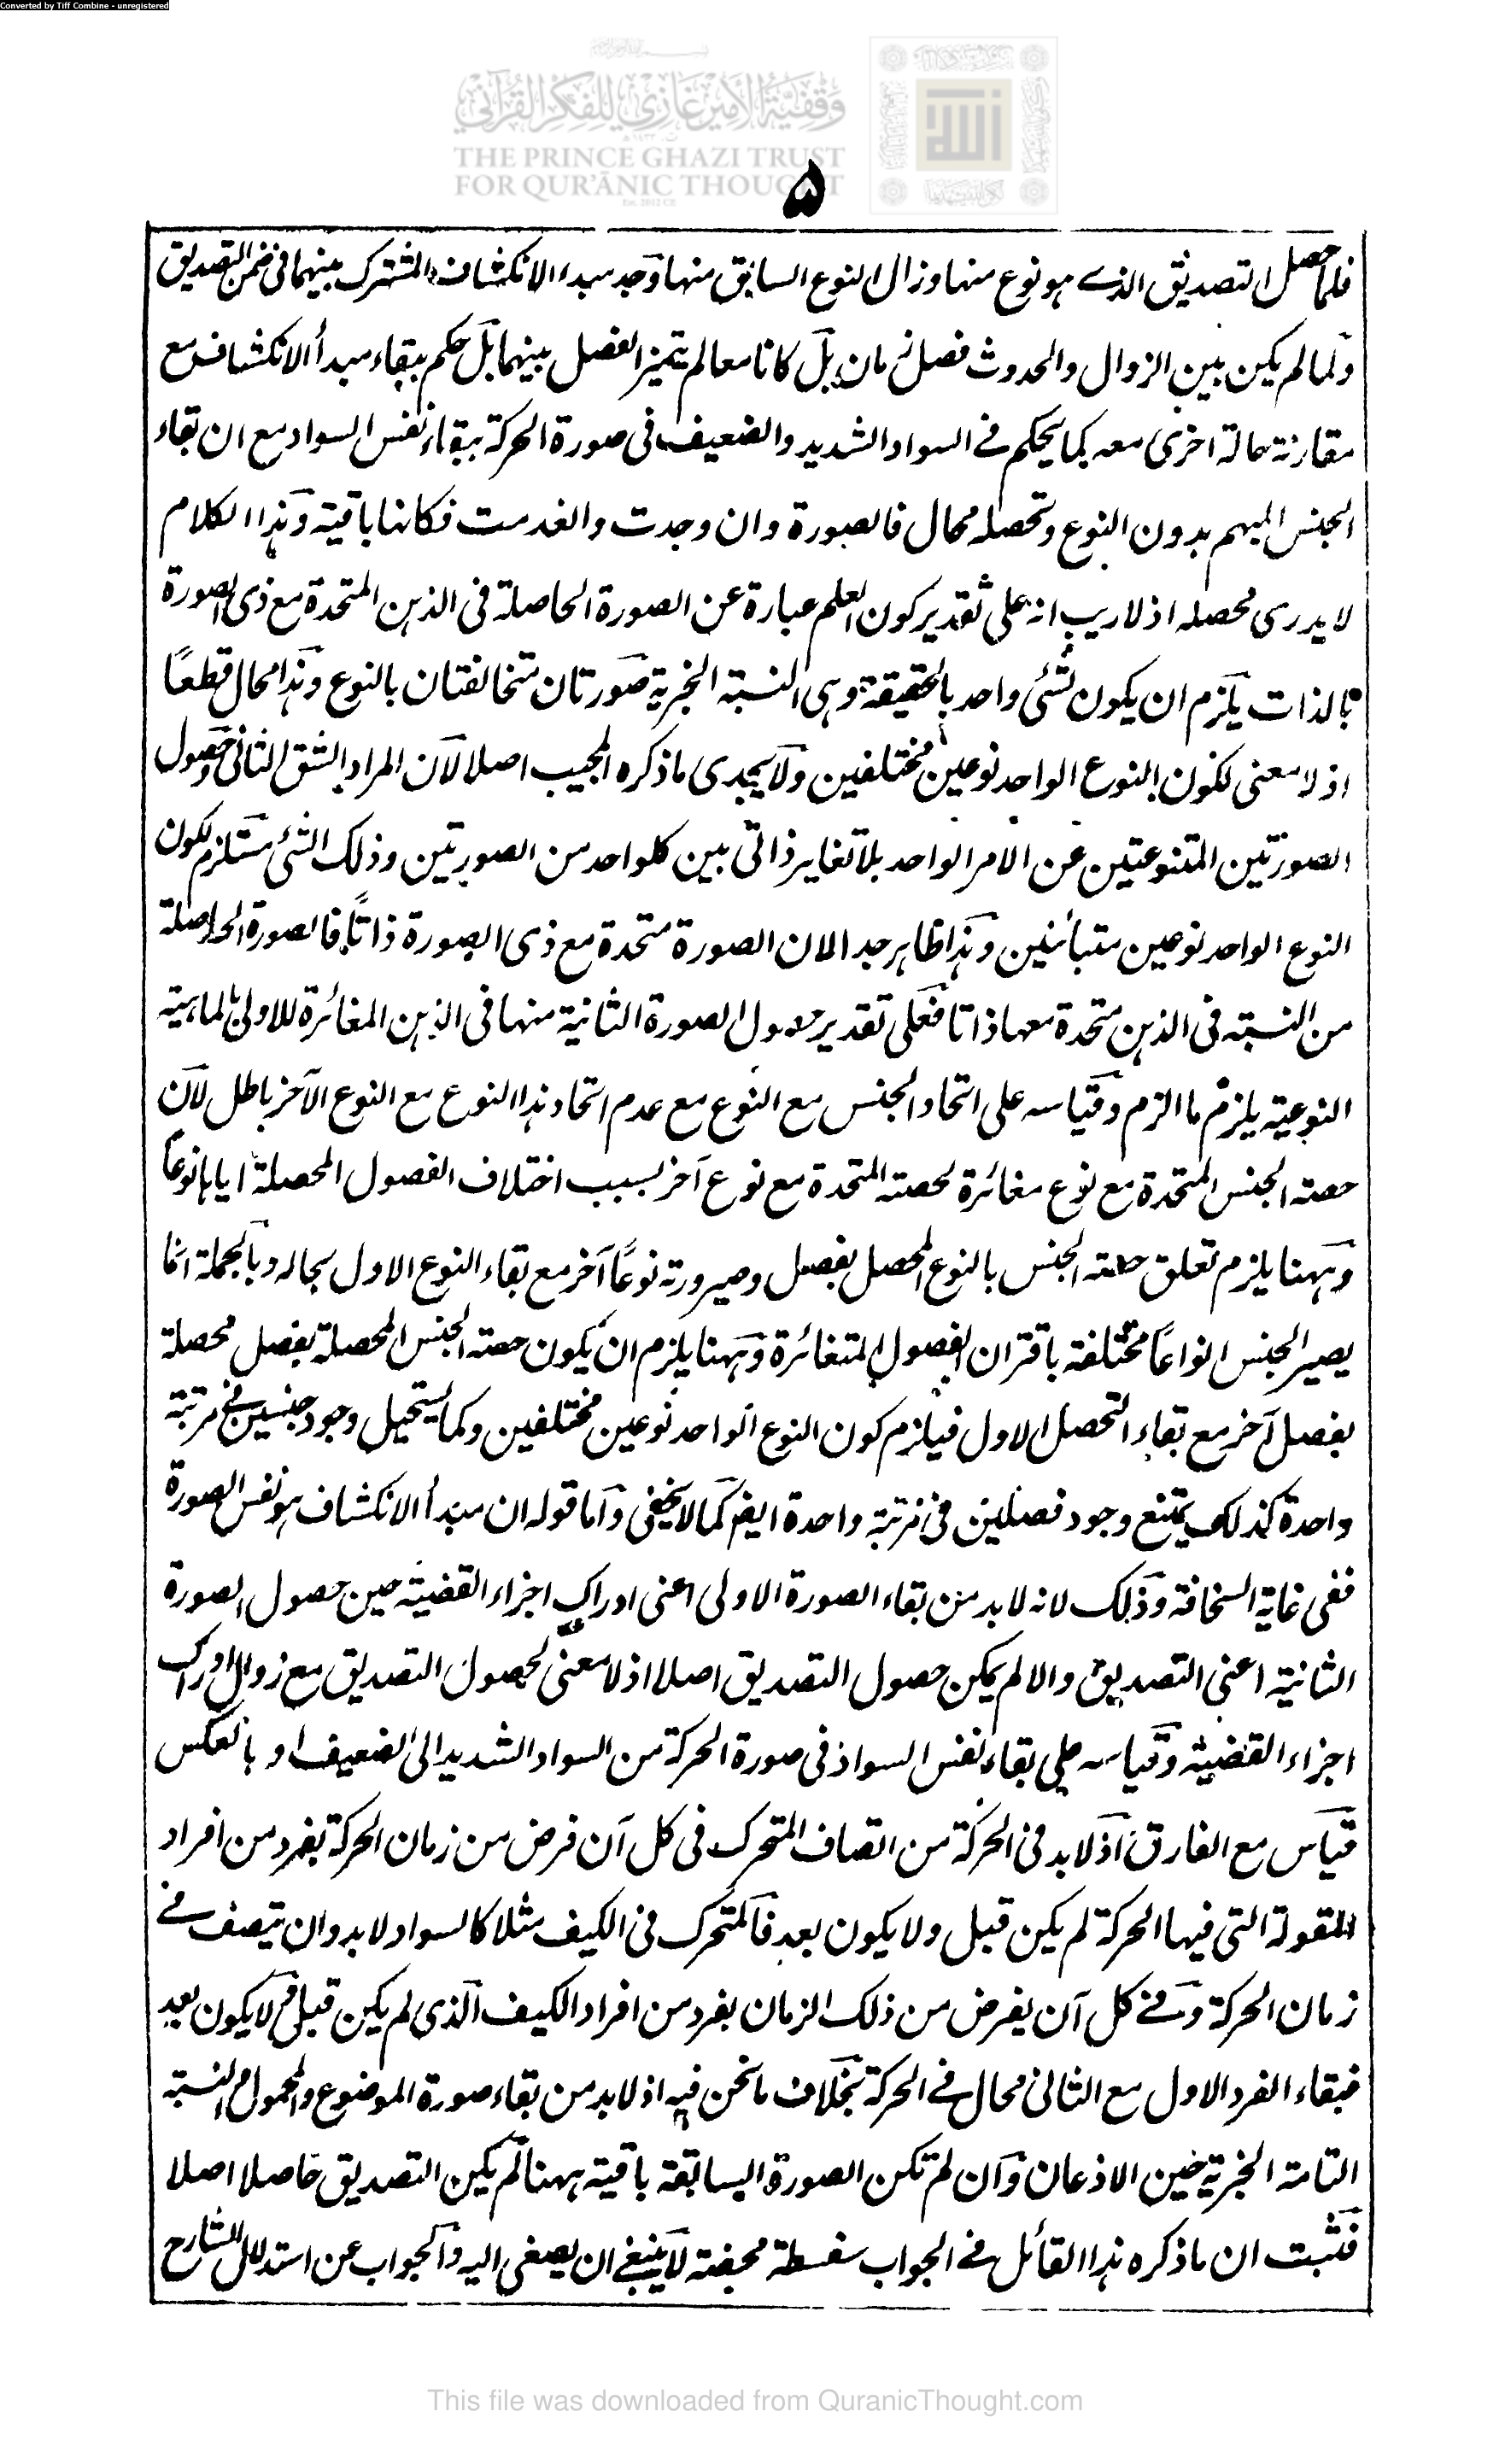 Converted by Tiff Combine - unregistered
وقفية الأمير غازي للفكر القرآني
THE PRINCE GHAZI TRUST
FOR QUR'ĀNIC THOUGHT
Est. 2012 CE
۵
فلما حصل التصديق الذے هو نوع منها وزال النوع السابق منها وجد مبدء الانكشاف المشترك بينهما فى ضمن التصديق
ولما لم يكن بين الزوال والحدوث فصل زمان بل كانا معا لم يتميز الفصل بينهما بل حكم ببقاء مبدأ الانكشاف مع
مقارنة حالة اخرى معه كما يحكم فے السواد الشديد والضعيف فى صورة الحركة ببقاء نفس السواد مع ان بقاء
الجنس المبهم بدون النوع وتحصله محال فالصورة وان وجدت وانعدمت فكانها باقية وهذا الكلام
لا يدرى محصله اذ لا ريب انه على تقدير كون العلم عبارة عن الصورة الحاصلة فى الذهن المتحدة مع ذى الصورة
بالذات يلزم ان يكون لشئى واحد بالحقيقة وهى النسبة الخبرية صورتان متخالفتان بالنوع وهذا محال قطعًا
اذ لا معنى لكون النوع الواحد نوعين مختلفين ولا يجدى ما ذكره المجيب اصلا لان المراد بالشق الثانى حصول
الصورتين المتنوعتين عن الامر الواحد بلا تغاير ذاتى بين كلواحد من الصورتين وذلك الشئ مستلزم لكون
النوع الواحد نوعين متبائنين وهذا ظاهر جدا لان الصورة متحدة مع ذى الصورة ذاتًا فالصورة الحاصلة
من النسبة فى الذهن متحدة معها ذاتا فعلى تقدير حصول الصورة الثانية منها فى الذهن المغائرة للاولى بالماهية
النوعية يلزم ما الزم وقياسه على اتحاد الجنس مع النوع مع عدم اتحاد هذا النوع مع النوع الآخر باطل لان
حصة الجنس المتحدة مع نوع مغائرة لحصته المتحدة مع نوع آخر بسبب اختلاف الفصول المحصلة اياها نوعًا
وههنا يلزم تعلق حصة الجنس بالنوع المحصل بفصل وصيرورته نوعًا آخر مع بقاء النوع الاول بحاله وبالجملة انما
يصير الجنس انواعًا مختلفة باقتران الفصول المتغائرة وههنا يلزم ان يكون حصة الجنس المحصلة بفصل محصلة
بفصل آخر مع بقاء التحصل الاول فيلزم كون النوع الواحد نوعين مختلفين وكما يستحيل وجود جنسين فى مرتبة
واحدة كذلك يمتنع وجود فصلين فى مرتبة واحدة ايضا كما لا يخفى واما قوله ان مبدأ الانكشاف هو نفس الصورة
ففى غاية السخافة وذلك لانه لا بد من بقاء الصورة الاولى اعنى ادراك اجزاء القضية حين حصول الصورة
الثانية اعنى التصديق والا لم يمكن حصول التصديق اصلا اذ لا معنى لحصول التصديق مع زوال ادراك
اجزاء القضية وقياسه على بقاء نفس السواد فى صورة الحركة من السواد الشديد الى الضعيف او بالعكس
قياس مع الفارق اذ لا بد فى الحركة من اتصاف المتحرك فى كل آن فرض من زمان الحركة بفرد من افراد
المقولة التى فيها الحركة لم يكن قبل ولا يكون بعد فالمتحرك فى الكيف مثلا كالسواد لا بد وان يتصف فے
زمان الحركة وفے كل آن يفرض من ذلك الزمان بفرد من افراد الكيف الذى لم يكن قبل و لا يكون بعد
فبقاء الفرد الاول مع الثانى محال فے الحركة بخلاف ما نحن فيه اذ لا بد من بقاء صورة الموضوع والمحمول والنسبة
التامة الخبرية حين الاذعان وان لم تكن الصورة السابقة باقية ههنا لم يكن التصديق حاصلا اصلا
فثبت ان ما ذكره هذا القائل فے الجواب سفسطة محضة لا ينبغے ان يصغى اليه والجواب عن استدلال الشارح
This file was downloaded from QuranicThought.com